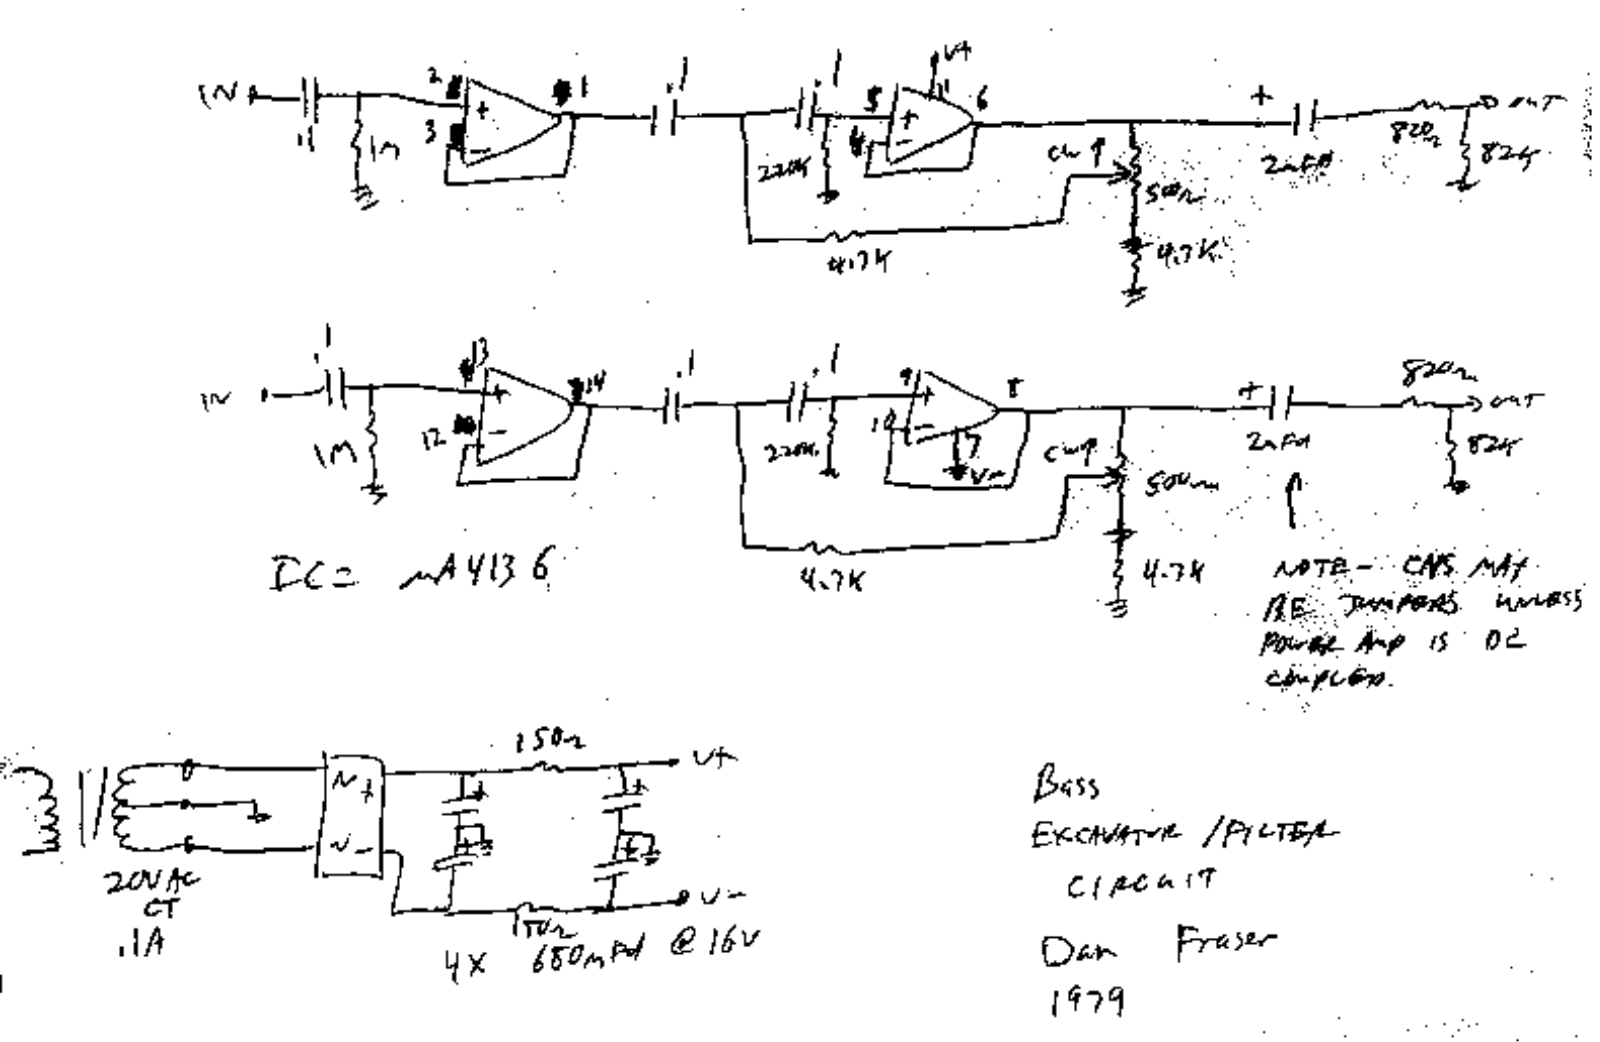 IN
.1
1M
2
3
+
-
1
.1
.1
220K
5
4
+
-
V+
11
6
4.7K
CW
500Ω
4.7K
+
2mFd
820Ω
OUT
82K
IN
.1
1M
13
12
+
-
14
.1
.1
220K
9
10
+
-
7
V-
8
4.7K
CW
500Ω
4.7K
+
2mFd
820Ω
OUT
82K
IC= μA4136
NOTE - CAPS MAY
BE JUMPERS UNLESS
POWER AMP IS DC
COUPLED.
20VAC
CT
.1A
N +
N -
150Ω
V+
+
+
+
+
150Ω
V-
4X 680mFd @ 16V
Bass
EXCAVATOR / FILTER
CIRCUIT
Dan Fraser
1979